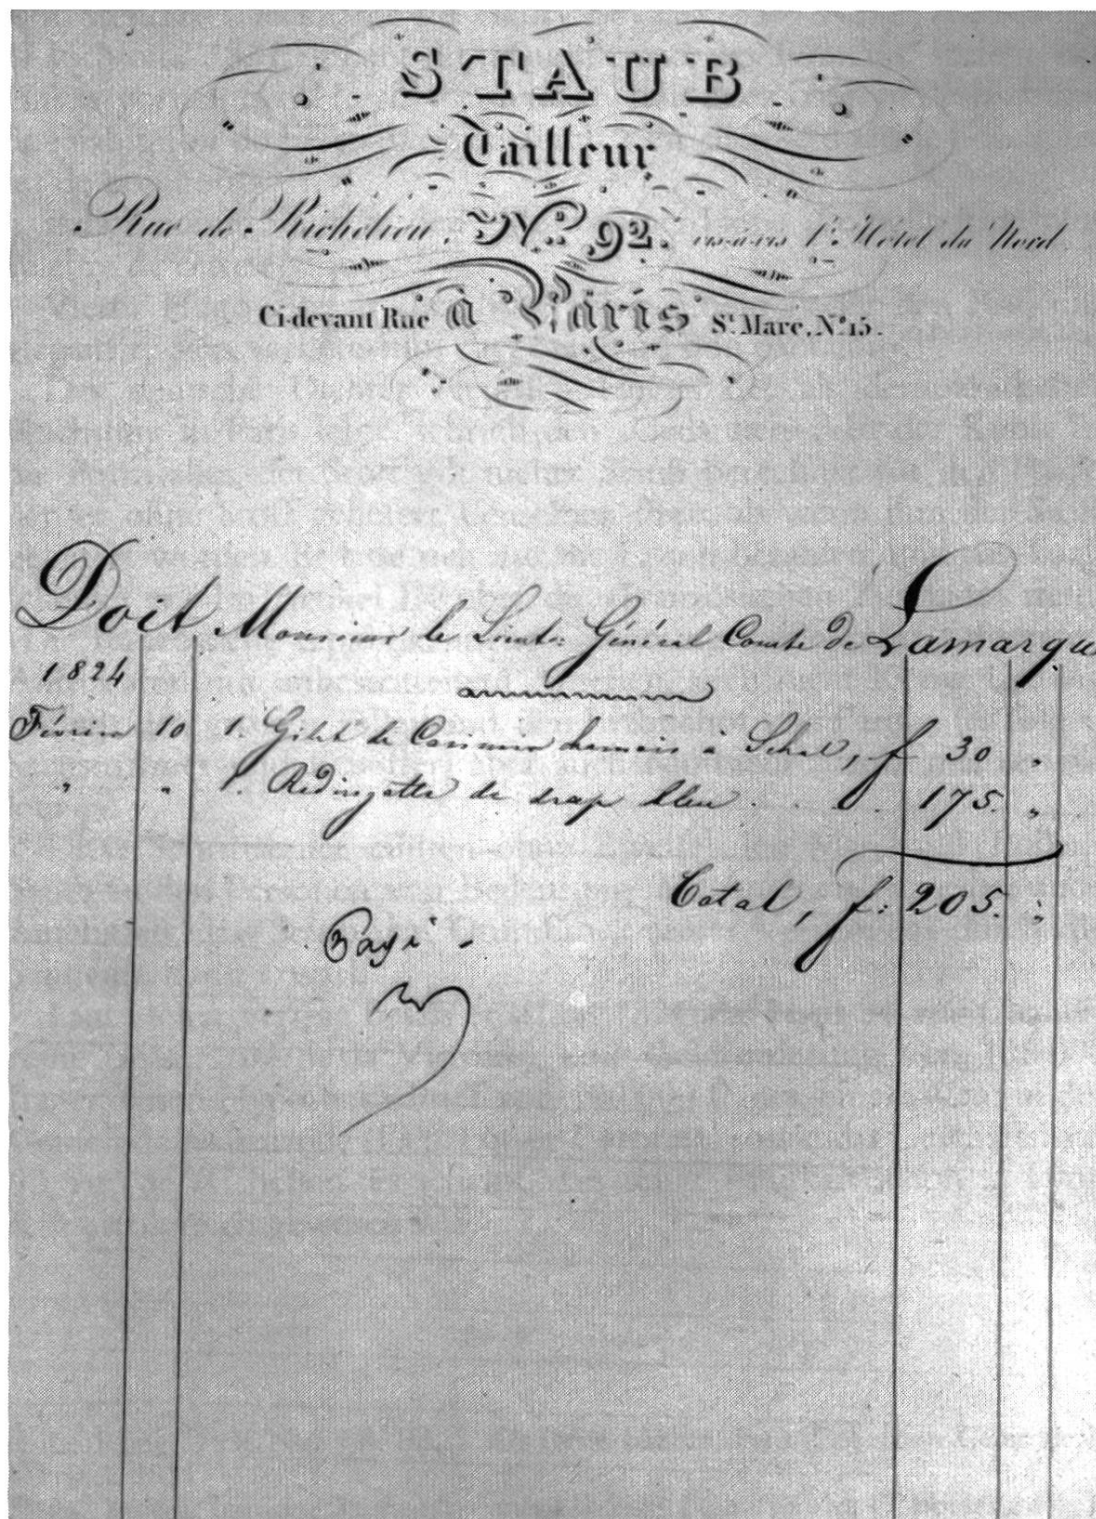 STAUB
Tailleur
Rue de Richelieu. N.º 92. vis-à-vis l'Hôtel du Nord
Ci-devant Rue à Paris St Marc, Nº 15.
Doit Monsieur le Lieutt. Général Comte de Lamarque
1824
Février 10 1. Gilet de Casimir chamois à Schal, f 30 "
" " 1. Redingotte de drap bleu . . . 175. "
Total, f: 205. "
Payé -